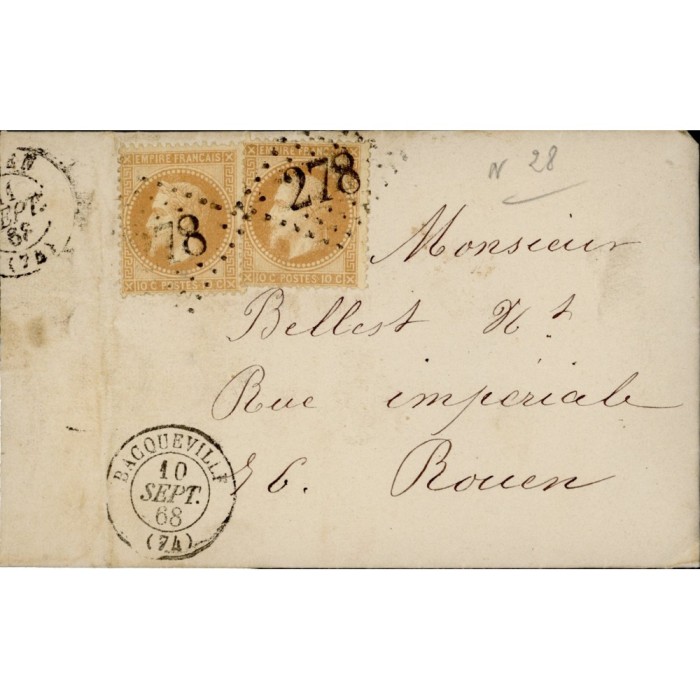 EMPIRE FRANCAIS
10 C POSTES 10 C
78
EMPIRE FRANCAIS
10 C POSTES 10 C
278
N 28
SEPT.
68
(74)
Monsieur
Bellest Nt
Rue impériale
76. Rouen
BACQUEVILLE
10
SEPT.
68
(74)